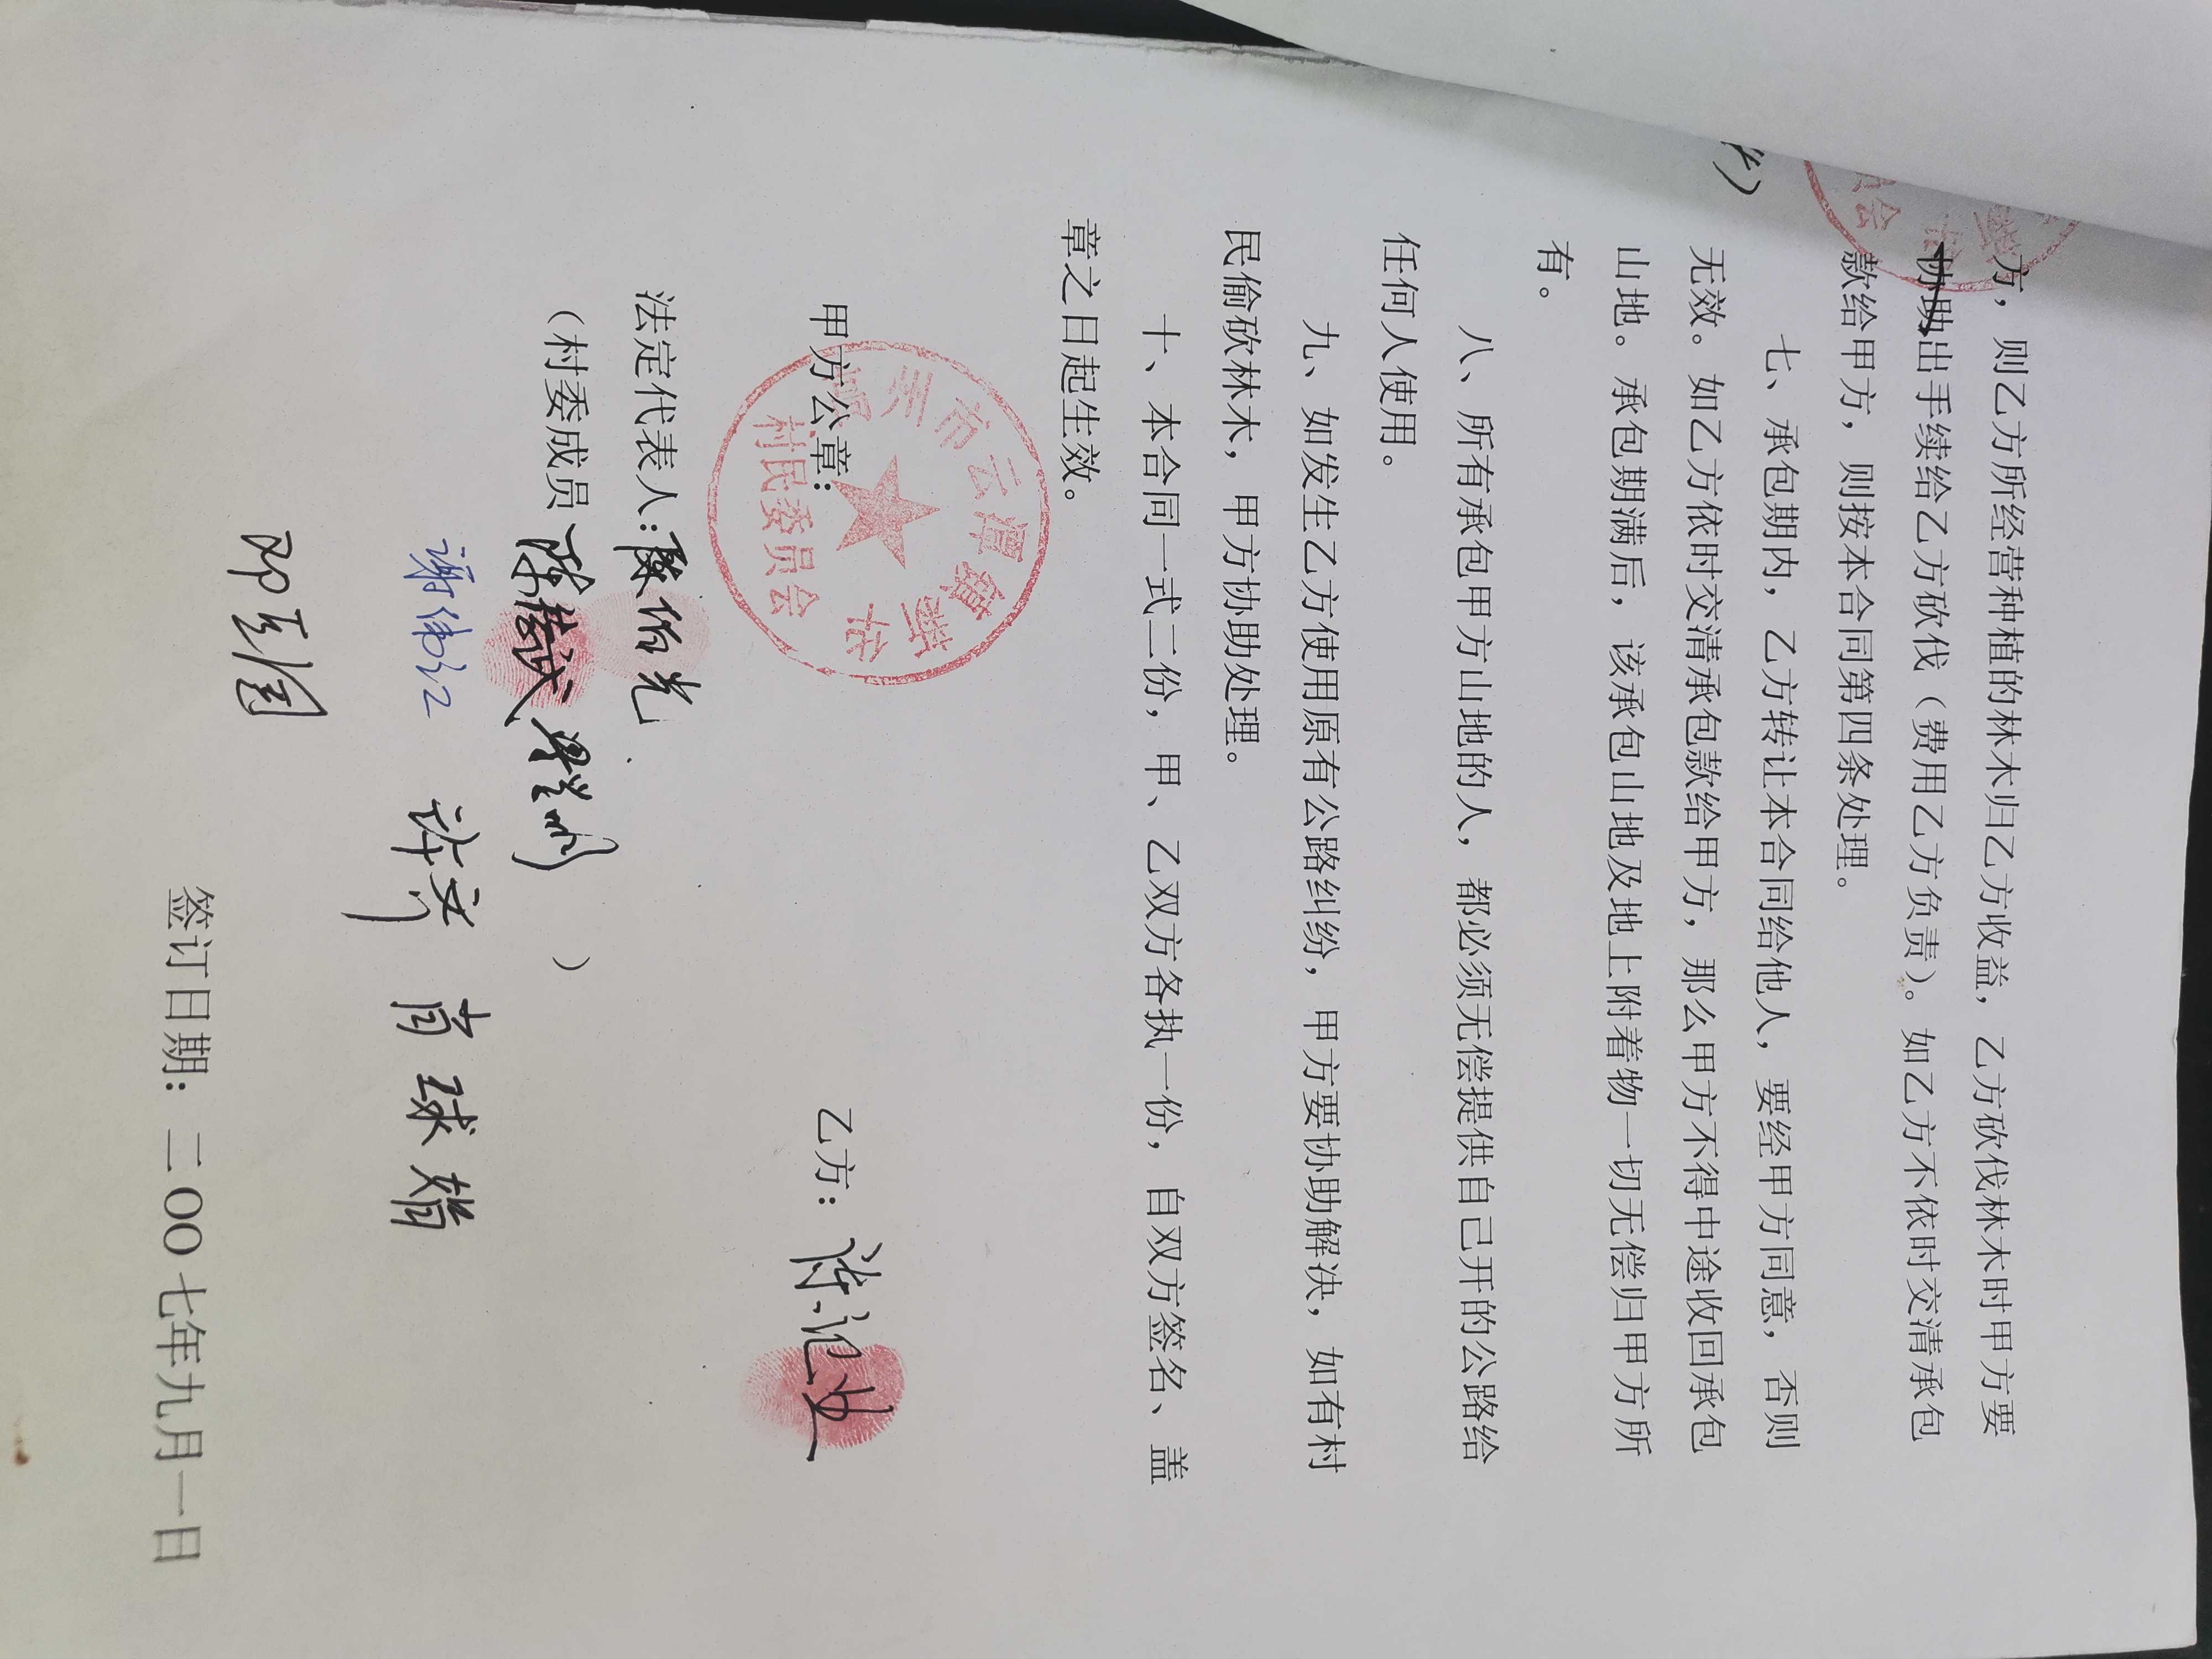 方，则乙方所经营种植的林木归乙方收益，乙方砍伐林木时甲方要
协助出手续给乙方砍伐（费用乙方负责）。如乙方不依时交清承包
款给甲方，则按本合同第四条处理。
七、承包期内，乙方转让本合同给他人，要经甲方同意，否则
无效。如乙方依时交清承包款给甲方，那么甲方不得中途收回承包
山地。承包期满后，该承包山地及地上附着物一切无偿归甲方所
有。
八、所有承包甲方山地的人，都必须无偿提供自己开的公路给
任何人使用。
九、如发生乙方使用原有公路纠纷，甲方要协助解决，如有村
民偷砍林木，甲方协助处理。
十、本合同一式二份，甲、乙双方各执一份，自双方签名、盖
章之日起生效。
甲方公章： 乙方：
州市云潭镇
村民委员会
法定代表人：陈伯光
（村委成员 ）
谢伟江 许 肖球
签订日期：二00七年九月一日